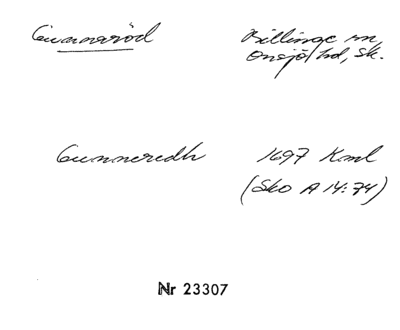 Gunnaröd
Billinge sn,
Onsjö hd, Sk.
Gunneredh
1697 Kml
(Sko A 14:74)
Nr 23307